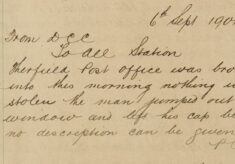 6th Sept 190
From D.C.C
To All Station
Therfield Post office was bro
into this morning nothing
stolen the man jumped out
window and left his cap be
no description can be given